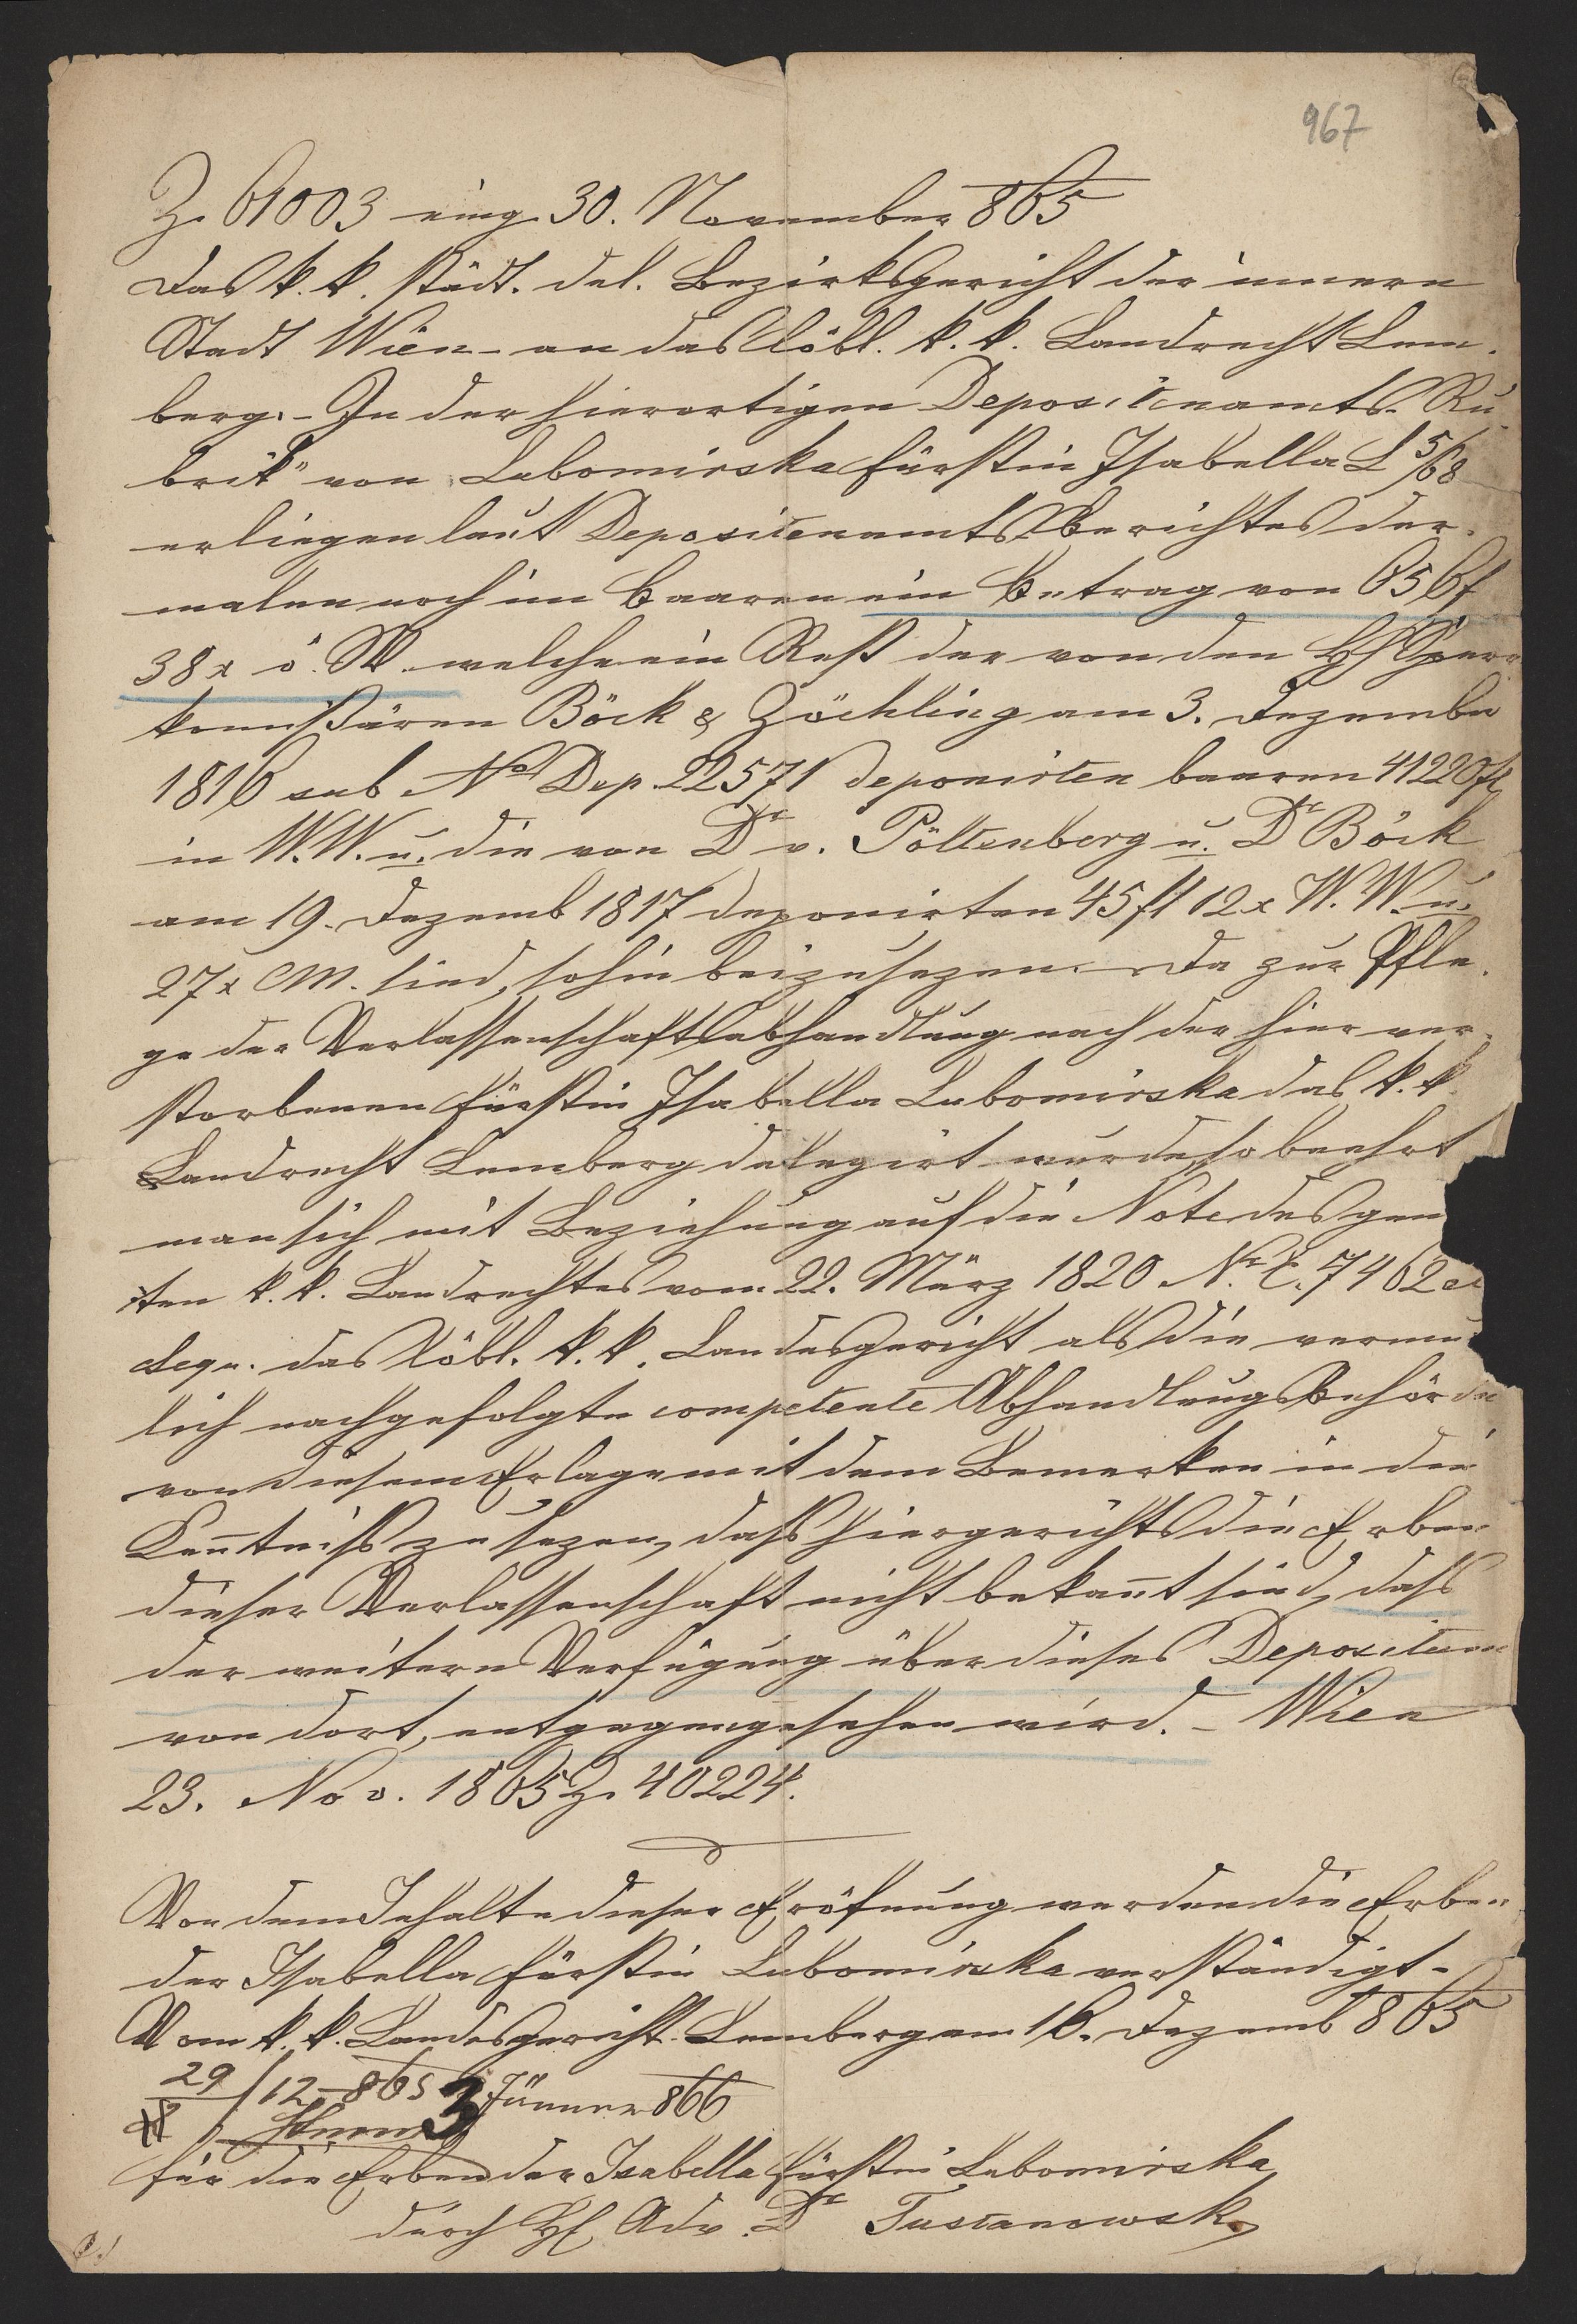 967
Z. 61003 eing. 30. November 865
Das k. k. städt. del. Bezirksgericht der innern
Stadt Wien – an das löbl. k. k. Landrecht Lem-
berg. – In der hierortigen Depositenamts-Ru-
brik" von Lubomirska Fürstin Isabella L 5/68
erliegen laut Depositenamtsberichtes der-
malen noch im Baaren ein Betrag von 656 f
38 x ö. W. welche ein Rest der von den HH Sperr
kommissären Böck & Zöchling am 3. Dezember
1816 sub No Dep. 22571 deponirten baaren 41220 fl
in W. W. u. die von Dr v. Pöltenberg u. Dr Böck
am 19. Dezemb 1817 deponirten 45 fl 12 x W. W. u.
27 x CM. sind, sohin beizusezen. – Da zur Pfle-
ge der Verlassenschaftsabhandlung nach der hier ver-
storbenen Fürstin Isabella Lubomirska das k. k.
Landrecht Lemberg delegirt wurde, so beehrt
man sich mit Beziehung auf die Note des gen
ten k. k. Landrechtes vom 22. März 1820 Nr E. 7462
sequ. das löbl. k. k. Landesgericht als die vermu
lich nachgefolgte competente Abhandlungsbehörde
von diesem Erlage mit dem Bemerken in die
Kenntniß zu sezen, daß hiergerichts die Erben
dieser Verlassenschaft nicht bekannt sind, daß
der weitern Verfügung über dieses Depositum
von dort, entgegengesehen wird. – Wien
23. Nov. 1865 Z. 40224.
Von dem Inhalte dieser Eröfnung werden die Erben
der Isabella Fürstin Lubomirska verständigt –
Vom k. k. Landesgericht Lemberg am 16. Dezemb 865
29/12 – 865 3 Jänner 866
für die Erben der Isabella Fürstin Lubomirska
durch H Adv. Dr Tustanowski